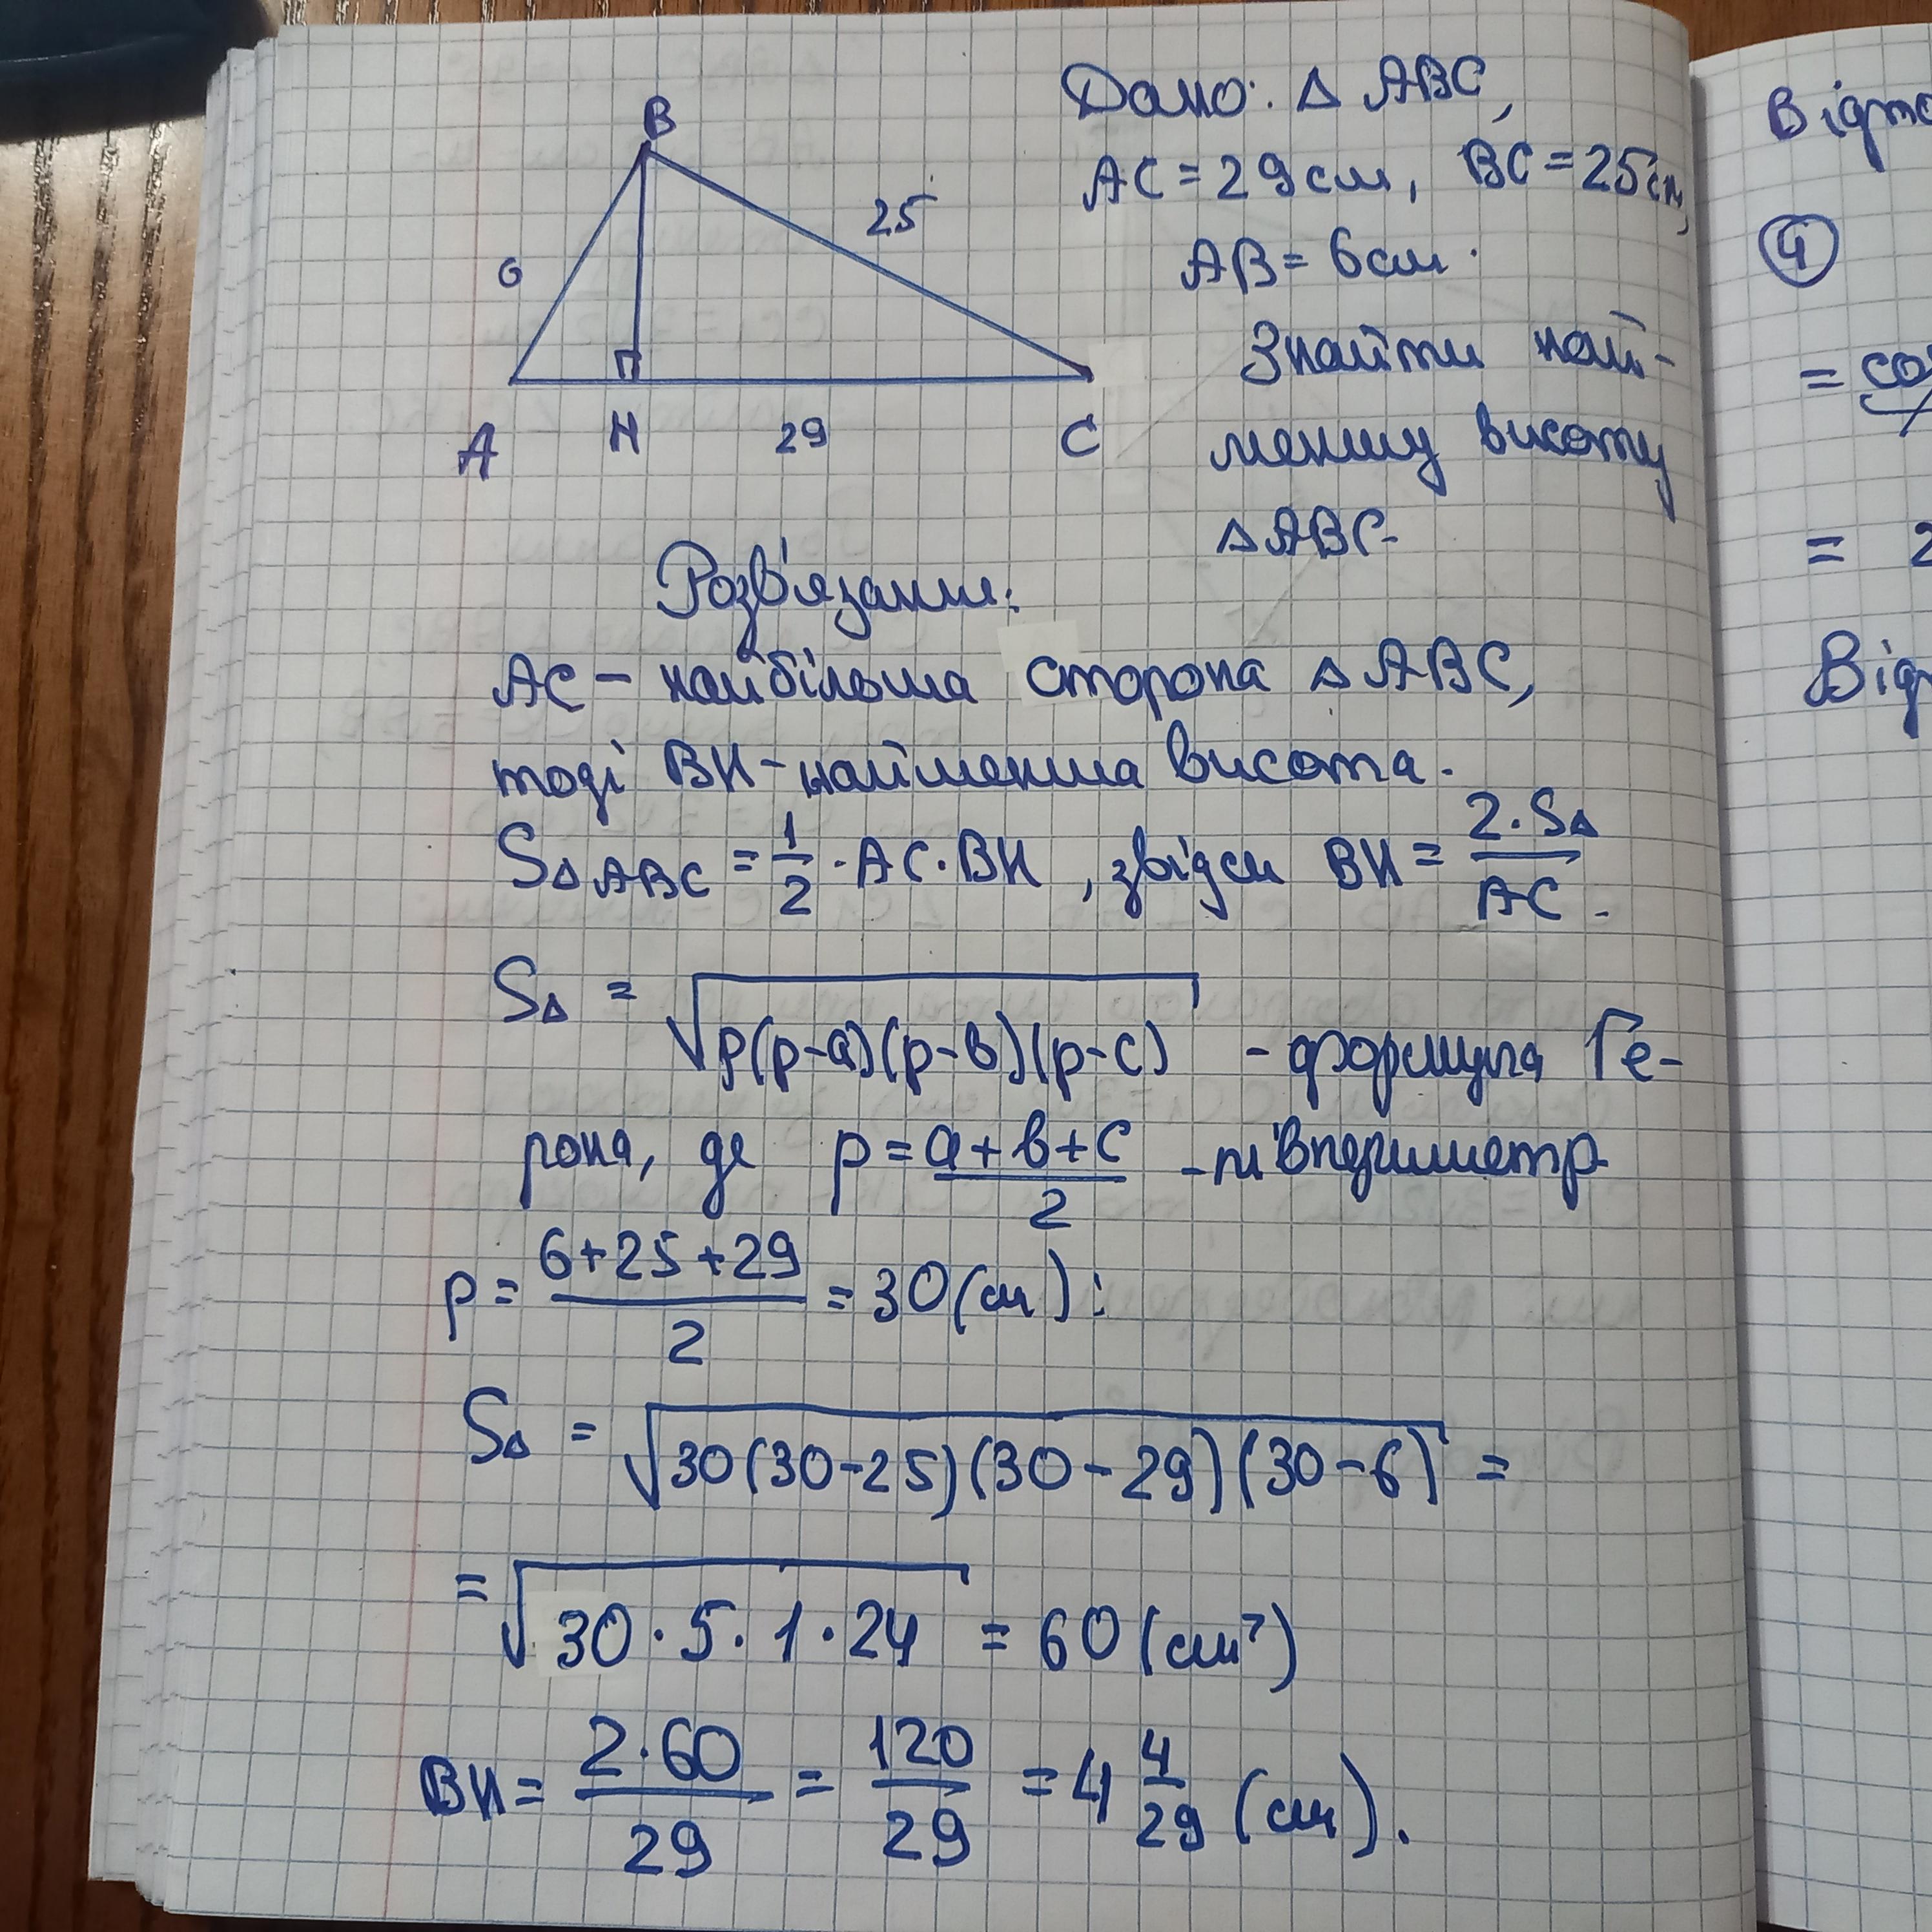 B
6
25
A
H
29
C
Дано: △ ABC,
AC = 29 см, BC = 25 см,
AB = 6 см.
Знайти най-
меншу висоту
△ABC.
Розв'язання:
AC – найбільша сторона △ ABC,
тоді BH – найменша висота.
S△ABC = 1/2 · AC · BH, звідси BH = 2·S△/AC.
S△ = √p(p-a)(p-b)(p-c) - формула Ге-
рона, де p = a+b+c/2 - півпериметр
p = 6+25+29/2 = 30 (см);
S△ = √30(30-25)(30-29)(30-6) =
= √30·5·1·24 = 60 (см²)
BH = 2·60/29 = 120/29 = 4 4/29 (см).
4
=
= 2